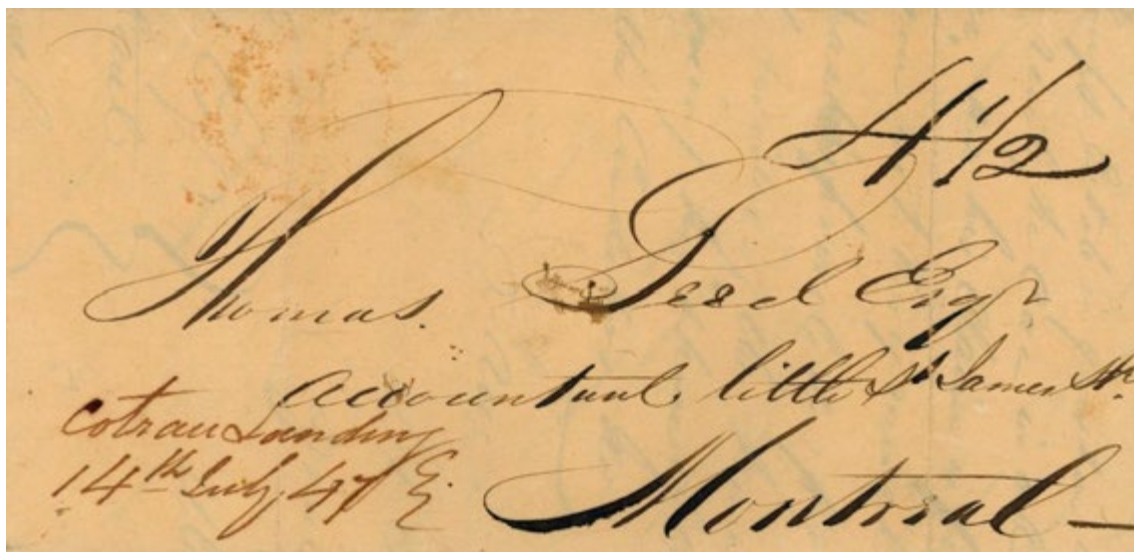 4½
Thomas. Peed Esqr
Accountant little St James Str.
Coteau Landing
14th July, 47
Montreal —